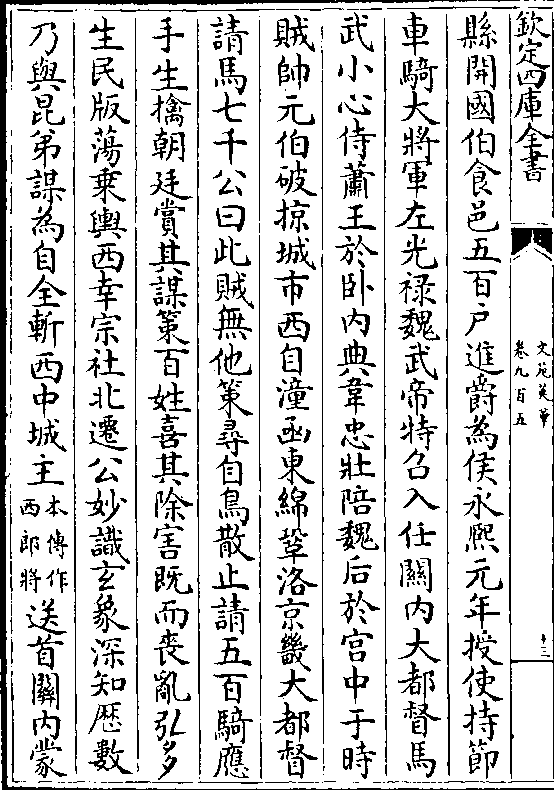 欽定四庫全書
文苑英華
卷九百五
十三
縣開國伯食邑五百戶進爵為侯永熙元年授使持節
車騎大將軍左光祿魏武帝特召入任關內大都督馬
武小心侍蕭王於卧内典韋忠壯陪魏后於宫中于時
賊帥元伯破掠城市西自潼函東綿鞏洛京畿大都督
請馬七千公曰此賊無他策尋自鳥散止請五百騎應
手生擒朝廷賞其謀策百姓喜其除害既而喪亂弘多
生民版蕩乗輿西幸宗社北遷公妙識玄象深知歴數
乃與昆弟謀為自全斬西中城主本傳作西郎將送首關内蒙